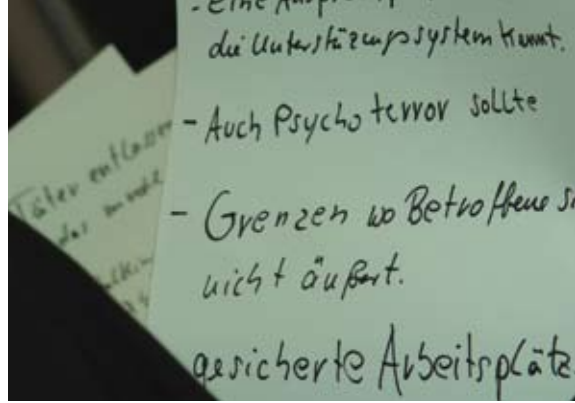 - eine
die Unterstüzungssystem kennt.
- Auch Psychoterror sollte
- Grenzen wo Betroffene si
nicht äußert.
gesicherte Arbeitsplätz
Täter entlassen
das